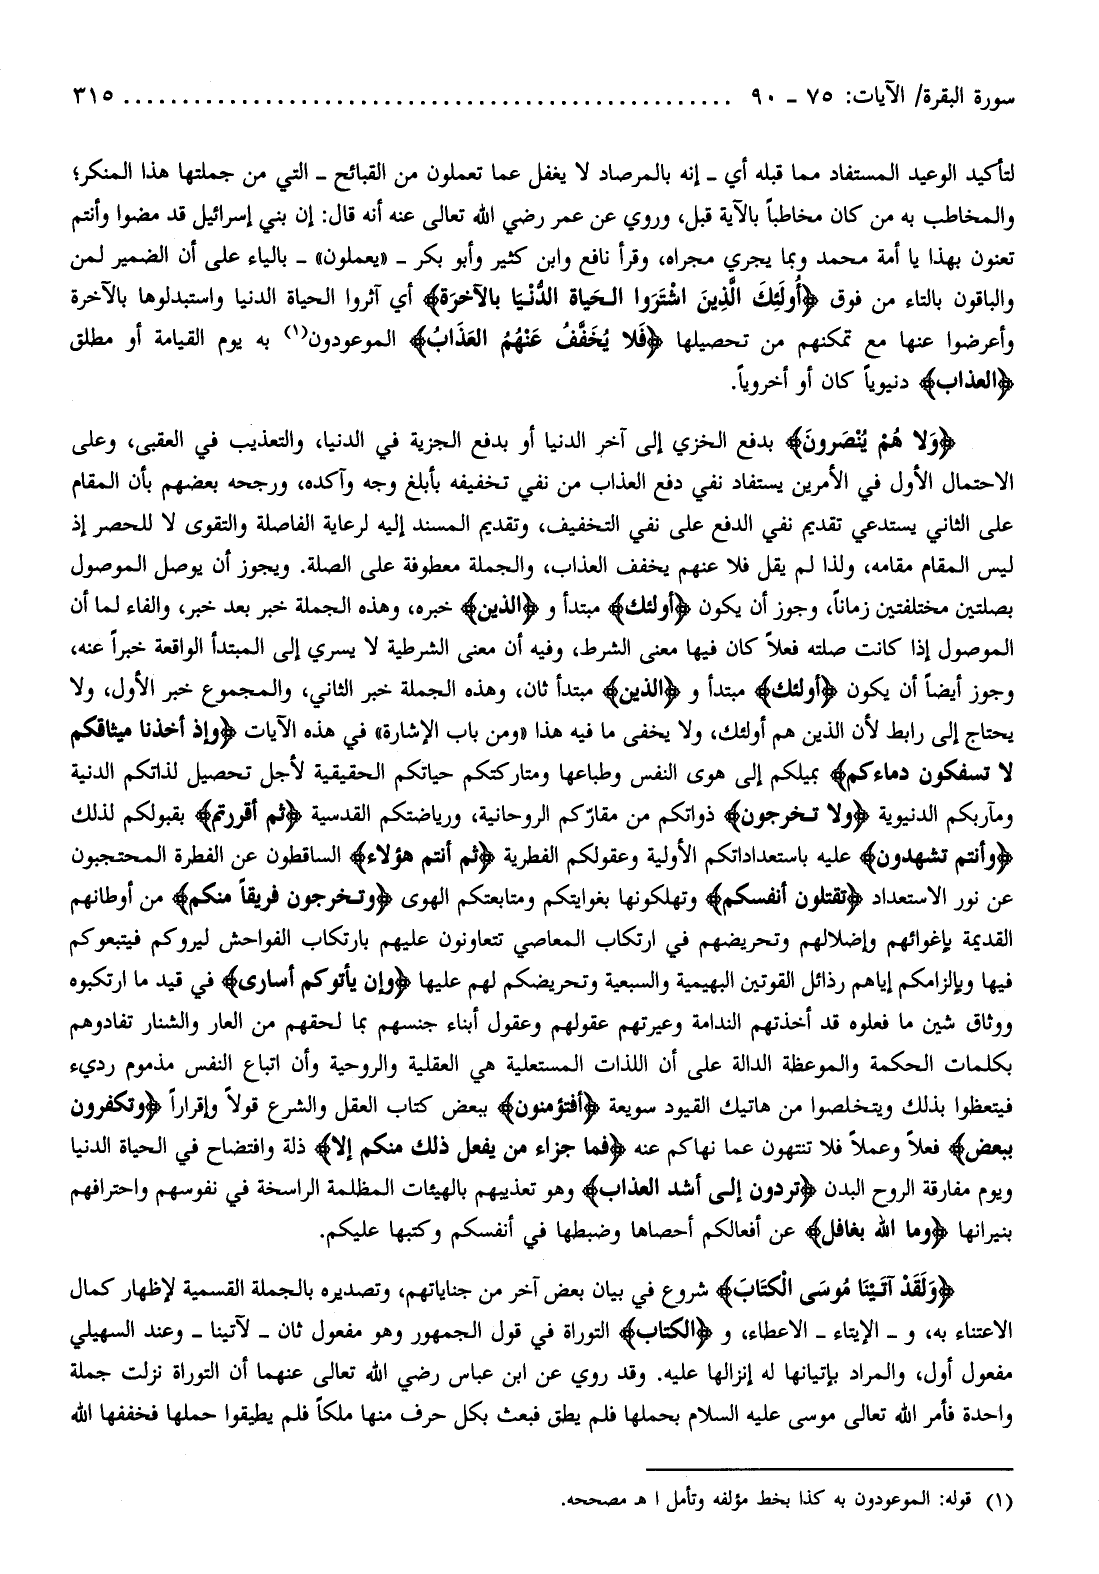 سورة البقرة/ الآيات: ٧٥ ــ ٩٠ ................................................... ٣١٥
لتأكيد الوعيد المستفاد مما قبله أي ــ إنه بالمرصاد لا يغفل عما تعملون من القبائح ــ التي من جملتها هذا المنكر؛
والمخاطب به من كان مخاطباً بالآية قبل، وروي عن عمر رضي الله تعالى عنه أنه قال: إن بني إسرائيل قد مضوا وأنتم
تعنون بهذا يا أمة محمد وبما يجري مجراه، وقرأ نافع وابن كثير وأبو بكر ــ «يعملون» ــ بالياء على أن الضمير لمن
والباقون بالتاء من فوق ﴿أُولَئِكَ الَّذِينَ اشْتَرَوا الحَياةَ الدُّنْيَا بالآخرَةِ﴾ أي آثروا الحياة الدنيا واستبدلوها بالآخرة
وأعرضوا عنها مع تمكنهم من تحصيلها ﴿فَلا يُخَفَّفُ عَنْهُم العَذَابُ﴾ الموعودون(١) به يوم القيامة أو مطلق
﴿العذاب﴾ دنيوياً كان أو أخروياً.
﴿وَلا هُمْ يُنْصَرونَ﴾ بدفع الخزي إلى آخر الدنيا أو بدفع الجزية في الدنيا، والتعذيب في العقبى، وعلى
الاحتمال الأول في الأمرين يستفاد نفي دفع العذاب من نفي تخفيفه بأبلغ وجه وآكده، ورجحه بعضهم بأن المقام
على الثاني يستدعي تقديم نفي الدفع على نفي التخفيف، وتقديم المسند إليه لرعاية الفاصلة والتقوى لا للحصر إذ
ليس المقام مقامه، ولذا لم يقل فلا عنهم يخفف العذاب، والجملة معطوفة على الصلة. ويجوز أن يوصل الموصول
بصلتين مختلفتين زماناً، وجوز أن يكون ﴿أولئك﴾ مبتدأ و ﴿الذين﴾ خبره، وهذه الجملة خبر بعد خبر، والفاء لما أن
الموصول إذا كانت صلته فعلاً كان فيها معنى الشرط، وفيه أن معنى الشرطية لا يسري إلى المبتدأ الواقعة خبراً عنه،
وجوز أيضاً أن يكون ﴿أولئك﴾ مبتدأ و ﴿الذين﴾ مبتدأ ثان، وهذه الجملة خبر الثاني، والمجموع خبر الأول، ولا
يحتاج إلى رابط لأن الذين هم أولئك، ولا يخفى ما فيه هذا «ومن باب الإشارة» في هذه الآيات ﴿وإذ أخذنا ميثاقكم
لا تسفكون دماءكم﴾ بميلكم إلى هوى النفس وطباعها ومتاركتكم حياتكم الحقيقية لأجل تحصيل لذاتكم الدنية
ومآربكم الدنيوية ﴿ولا تخرجون﴾ ذواتكم من مقارّكم الروحانية، ورياضتكم القدسية ﴿ثم أقررتم﴾ بقبولكم لذلك
﴿وأنتم تشهدون﴾ عليه باستعداداتكم الأولية وعقولكم الفطرية ﴿ثم أنتم هؤلاء﴾ الساقطون عن الفطرة المحتجبون
عن نور الاستعداد ﴿تقتلون أنفسكم﴾ وتهلكونها بغوايتكم ومتابعتكم الهوى ﴿وتخرجون فريقاً منكم﴾ من أوطانهم
القديمة بإغوائهم وإضلالهم وتحريضهم في ارتكاب المعاصي تتعاونون عليهم بارتكاب الفواحش ليروكم فيتبعوكم
فيها وبإلزامكم إياهم رذائل القوتين البهيمية والسبعية وتحريضكم لهم عليها ﴿وإن يأتوكم أسارى﴾ في قيد ما ارتكبوه
ووثاق شين ما فعلوه قد أخذتهم الندامة وعيرتهم عقولهم وعقول أبناء جنسهم بما لحقهم من العار والشنار تفادوهم
بكلمات الحكمة والموعظة الدالة على أن اللذات المستعلية هي العقلية والروحية وأن اتباع النفس مذموم رديء
فيتعظوا بذلك ويتخلصوا من هاتيك القيود سويعة ﴿أفتؤمنون﴾ ببعض كتاب العقل والشرع قولاً وإقراراً ﴿وتكفرون
ببعض﴾ فعلاً وعملاً فلا تنتهون عما نهاكم عنه ﴿فما جزاء من يفعل ذلك منكم إلا﴾ ذلة وافتضاح في الحياة الدنيا
ويوم مفارقة الروح البدن ﴿تردون إلى أشد العذاب﴾ وهو تعذيبهم بالهيئات المظلمة الراسخة في نفوسهم واحترافهم
بنيرانها ﴿وما الله بغافل﴾ عن أفعالكم أحصاها وضبطها في أنفسكم وكتبها عليكم.
﴿وَلَقَدْ آتَيْنَا مُوسَى الْكتَابَ﴾ شروع في بيان بعض آخر من جناياتهم، وتصديره بالجملة القسمية لإظهار كمال
الاعتناء به، و ــ الإيتاء ــ الاعطاء، و ﴿الكتاب﴾ التوراة في قول الجمهور وهو مفعول ثان ــ لآتينا ــ وعند السهيلي
مفعول أول، والمراد بإتيانها له إنزالها عليه. وقد روي عن ابن عباس رضي الله تعالى عنهما أن التوراة نزلت جملة
واحدة فأمر الله تعالى موسى عليه السلام بحملها فلم يطق فبعث بكل حرف منها ملكاً فلم يطيقوا حملها فخففها الله
(١) قوله: الموعودون به كذا بخط مؤلفه وتأمل ا هـ مصححه.